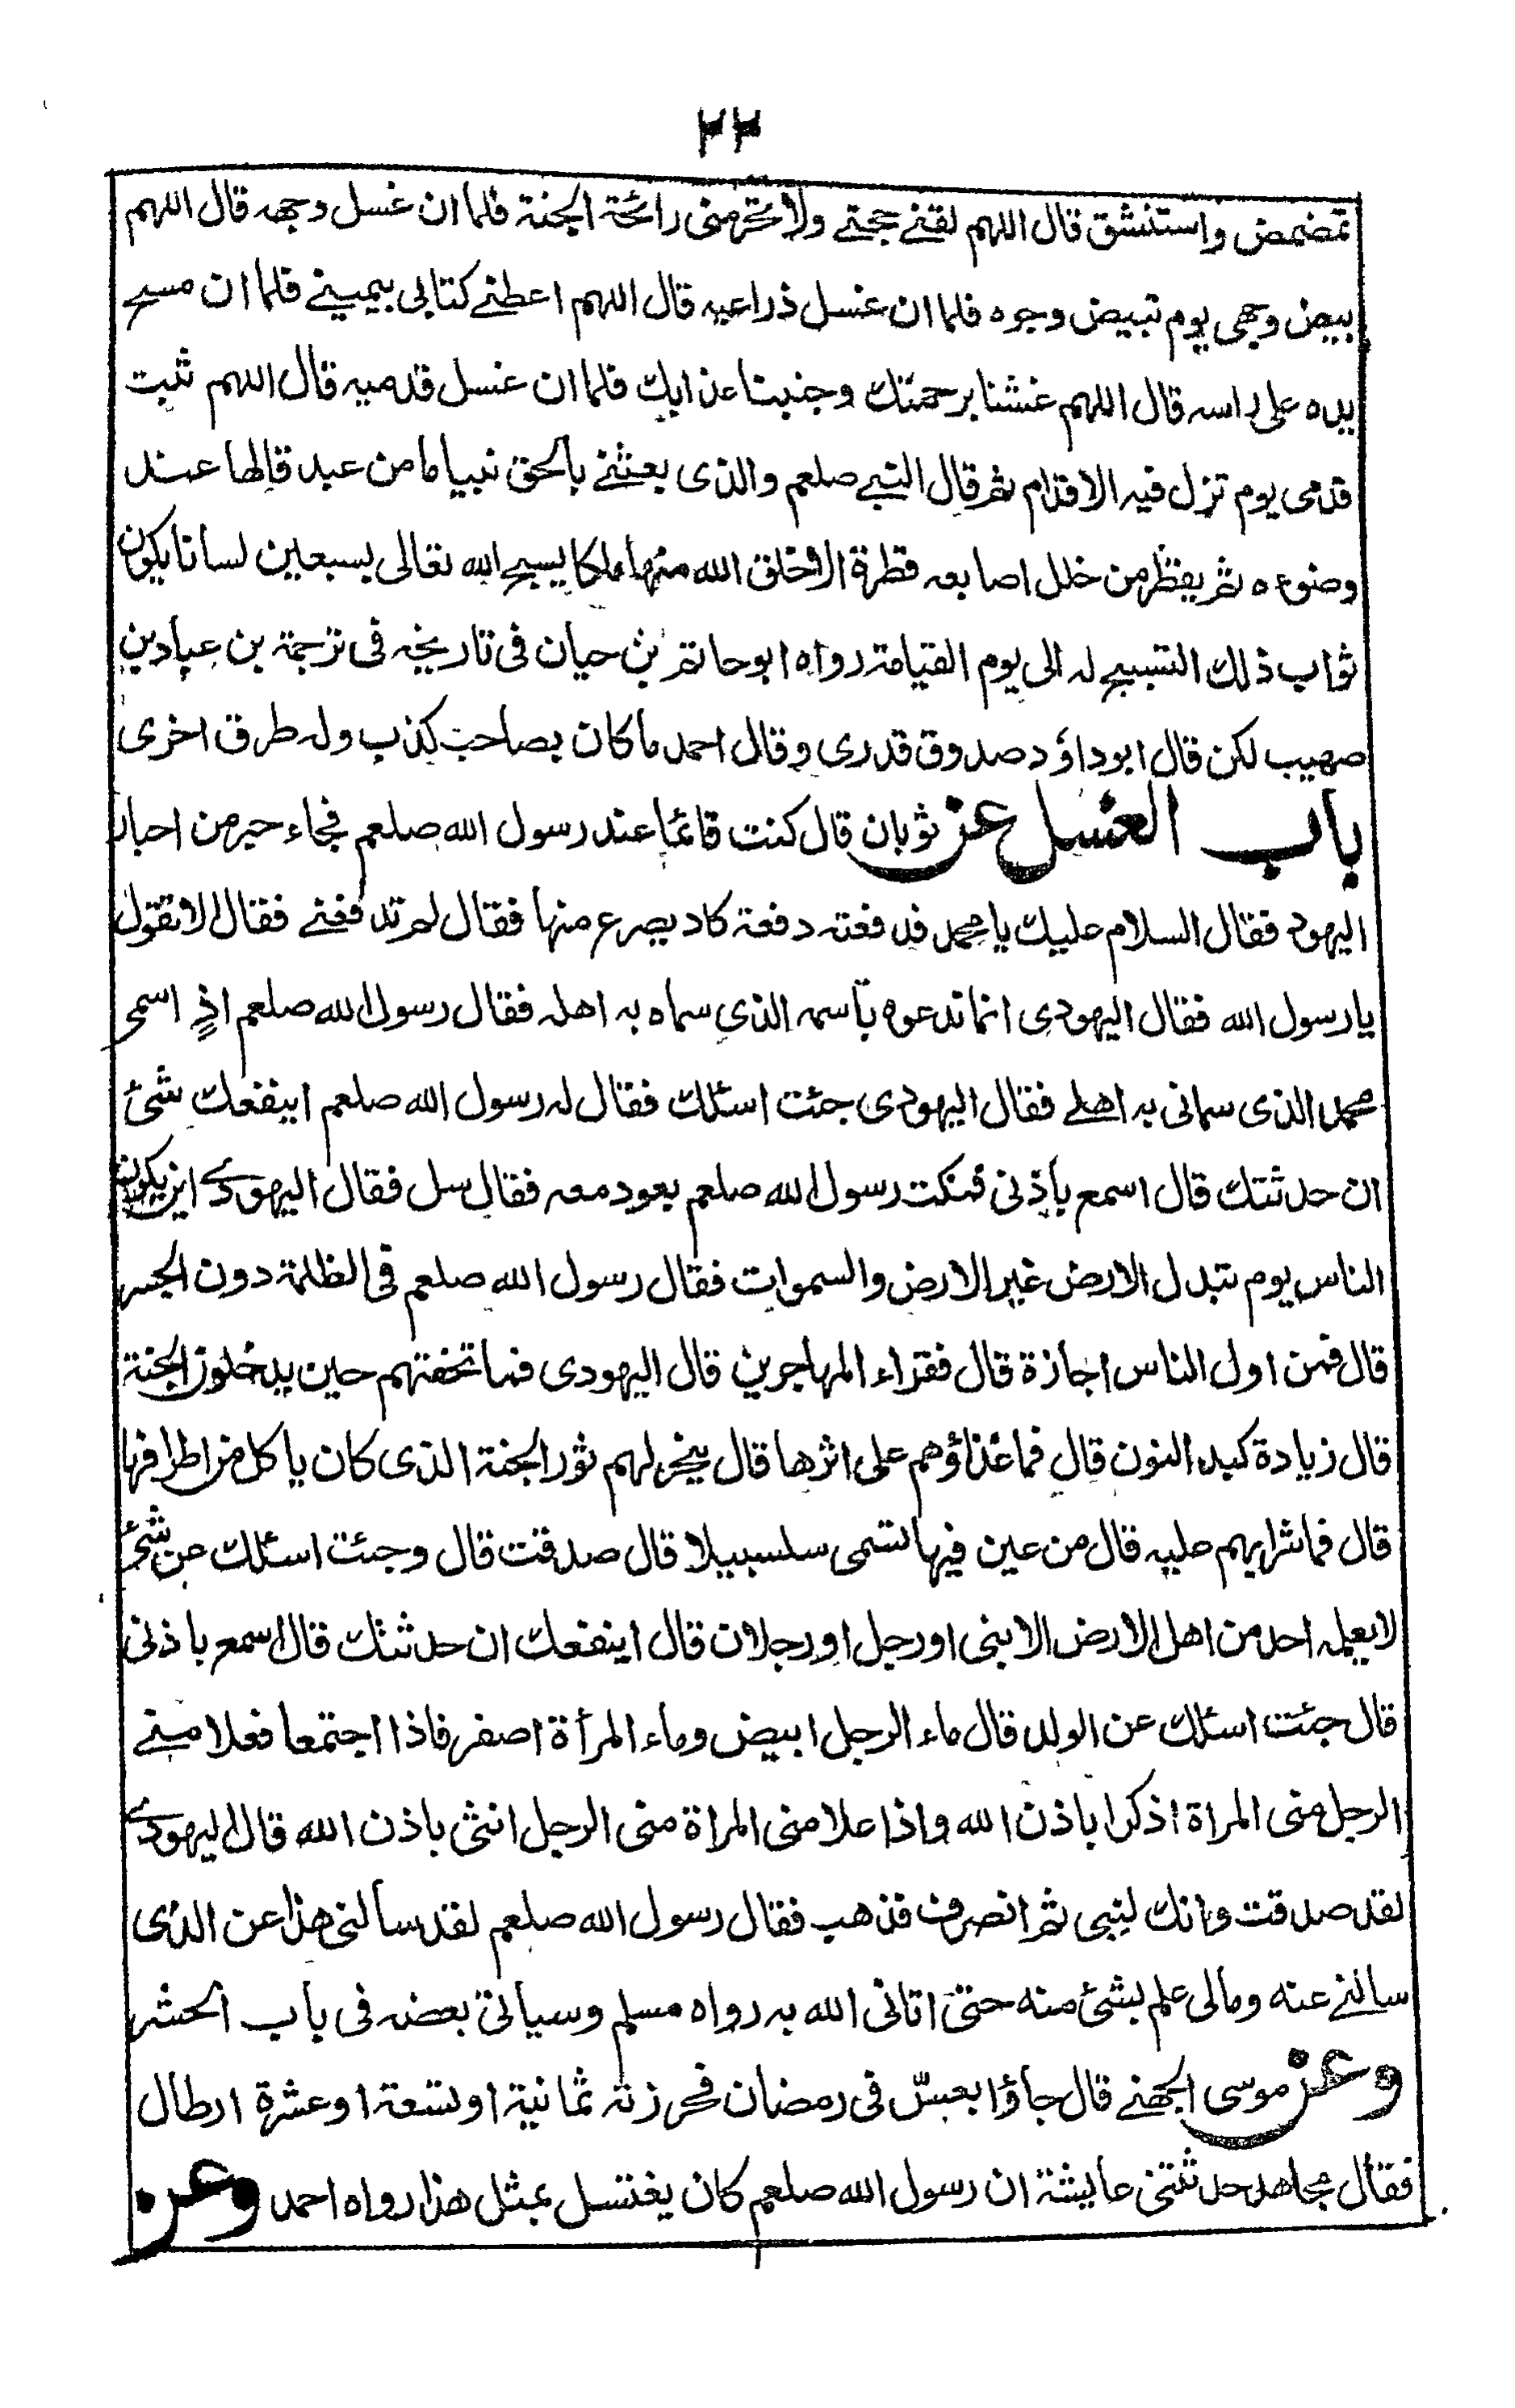 ٢٢
تمضمض واستنشق قال اللهم لقنے حجتے ولا تحرمنی رائحة الجنة فلما ان غسل وجهه قال اللهم
بیض وجهی یوم تبیض وجوه فلما ان غسل ذراعیه قال اللهم اعطنے کتابی بیمینے فلما ان مسح
یده علی راسه قال اللهم غشنا برحمتك وجنبنا عذابك فلما ان غسل قدمیه قال اللهم ثبت
قدمی یوم تزل فیه الاقدام ثم قال النبے صلعم والذی بعثنے بالحق نبیا ما من عبد قالها عند
وضوءه ثم یقطر من خلل اصابعه قطرة الا خلق الله منها ملکا یسبح الله تعالی بسبعین لسانا یکون
ثواب ذلك التسبیح له الی یوم القیامة رواه ابو حاتم بن حیان فی تاریخه فی ترجمة بن عباد بن
صهیب لکن قال ابو داؤد صدوق قدری وقال احمد ما کان بصاحب کذب وله طرق اخری
باب الغسل عن ثوبان قال کنت قائما عند رسول الله صلعم فجاء حبر من احبار
الیهود فقال السلام علیك یا محمد فدفعته دفعة کاد یصرع منها فقال لم تدفعنے فقال الا تقول
یا رسول الله فقال الیهودی انما ندعوه باسمه الذی سماه به اهله فقال رسول الله صلعم اذٍ اسمی
محمد الذی سمانی به اهلے فقال الیهودی جئت اسئلك فقال له رسول الله صلعم اینفعك شئ
ان حدثتك قال اسمع باذنی فنکت رسول الله صلعم بعود معه فقال سل فقال الیهودے این یکون
الناس یوم تبدل الارض غیر الارض والسموات فقال رسول الله صلعم فی الظلمة دون الجسر
قال فمن اول الناس اجازة قال فقراء المهاجرین قال الیهودی فما تحفتهم حین یدخلون الجنة
قال زیادة کبد النون قال فما غذاؤهم علی اثرها قال ینحر لهم ثور الجنة الذی کان یاکل من اطرافها
قال فما شرابهم علیه قال من عین فیها تسمی سلسبیلا قال صدقت قال وجئت اسئلك عن شئ
لا یعلمه احد من اهل الارض الا نبی او رجل او رجلان قال اینفعك ان حدثتك قال اسمع باذنی
قال جئت اسئلك عن الولد قال ماء الرجل ابیض وماء المرأة اصفر فاذا اجتمعا فعلا منے
الرجل منی المراة اذکرا باذن الله واذا علا منی المراة منی الرجل انثی باذن الله قال الیهودے
لقد صدقت وانك لنبی ثم انصرف فذهب فقال رسول الله صلعم لقد سألنی هذا عن الذی
سالنے عنه ومالی علم بشئ منه حتی اتانی الله به رواه مسلم وسیاتی بعضه فی باب الحشر
وعن موسی الجهنے قال جاؤا بعسّ فی رمضان فحرزته ثمانیة او تسعة او عشرة ارطال
فقال مجاهد حدثتنی عایشة ان رسول الله صلعم کان یغتسل بمثل هذا رواه احمد وعن